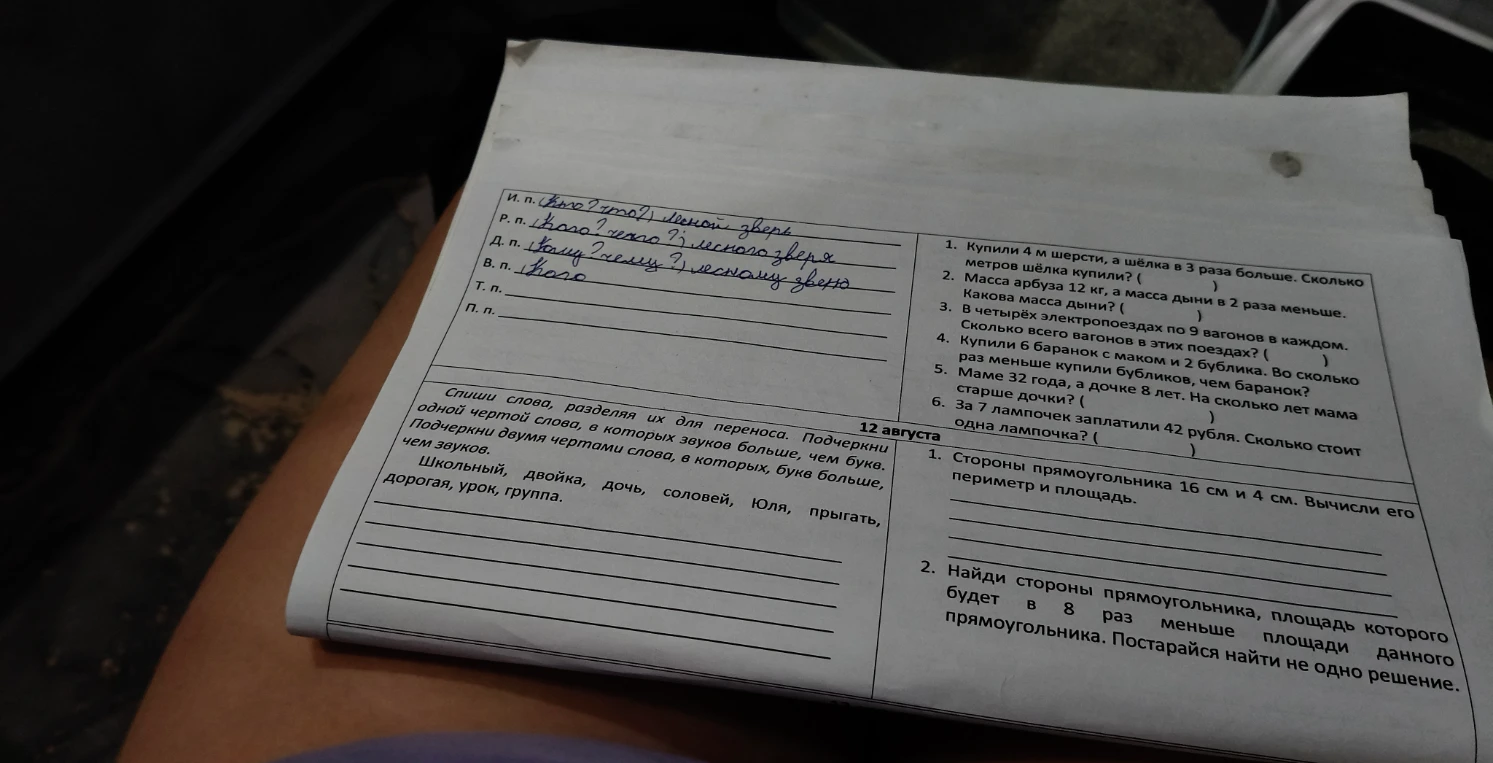 И. п. (Кто? что?) лесной зверь
Р. п. (Кого? чего?) лесного зверя
Д. п. (Кому? чему?) лесному зверю
В. п. (Кого
Т. п.
П. п.
1. Купили 4 м шерсти, а шёлка в 3 раза больше. Сколько
метров шёлка купили? ( )
2. Масса арбуза 12 кг, а масса дыни в 2 раза меньше.
Какова масса дыни? ( )
3. В четырёх электропоездах по 9 вагонов в каждом.
Сколько всего вагонов в этих поездах? ( )
4. Купили 6 баранок с маком и 2 бублика. Во сколько
раз меньше купили бубликов, чем баранок?
5. Маме 32 года, а дочке 8 лет. На сколько лет мама
старше дочки? ( )
6. За 7 лампочек заплатили 42 рубля. Сколько стоит
одна лампочка? ( )
12 августа
Спиши слова, разделяя их для переноса. Подчеркни
одной чертой слова, в которых звуков больше, чем букв.
Подчеркни двумя чертами слова, в которых, букв больше,
чем звуков.
Школьный, двойка, дочь, соловей, Юля, прыгать,
дорогая, урок, группа.
1. Стороны прямоугольника 16 см и 4 см. Вычисли его
периметр и площадь.
2. Найди стороны прямоугольника, площадь которого
будет в 8 раз меньше площади данного
прямоугольника. Постарайся найти не одно решение.